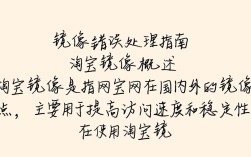 镜像错误处理指南
淘宝镜像概述
淘宝镜像是指网宝网在国内外的镜像
点，主要用于提高访问速度和稳定性
在使用淘宝镜